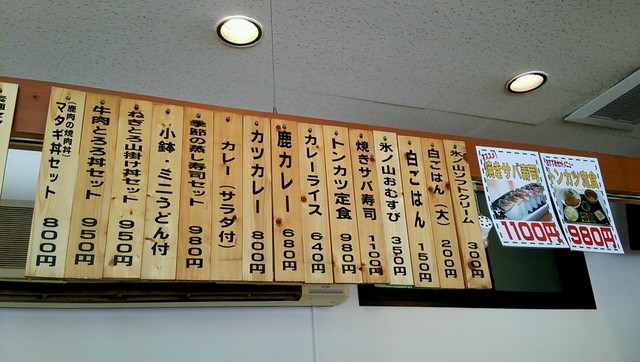 氷ノ山ソフトクリーム 300円
白ごはん(大) 200円
白ごはん 150円
氷ノ山おむすび 350円
焼きサバ寿司 1100円
トンカツ定食 980円
カレーライス 640円
鹿カレー 680円
カツカレー 800円
カレー(サラダ付
季節の蒸し寿司セット 980円
小鉢・ミニうどん付
ねぎとろ山掛け丼セット 950円
牛肉とろろ丼セット 950円
(鹿肉の焼肉丼)
マタギ丼セット 800円
焼きサバ寿司
1100円
トンカツ定食
980円